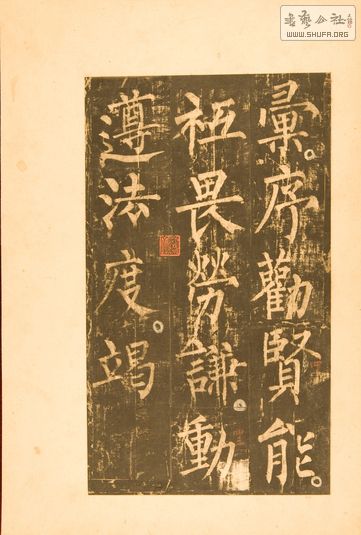 彙序勸賢能
祗畏勞謙動
遵法度竭
書藝公社
WWW.SHUFA.ORG